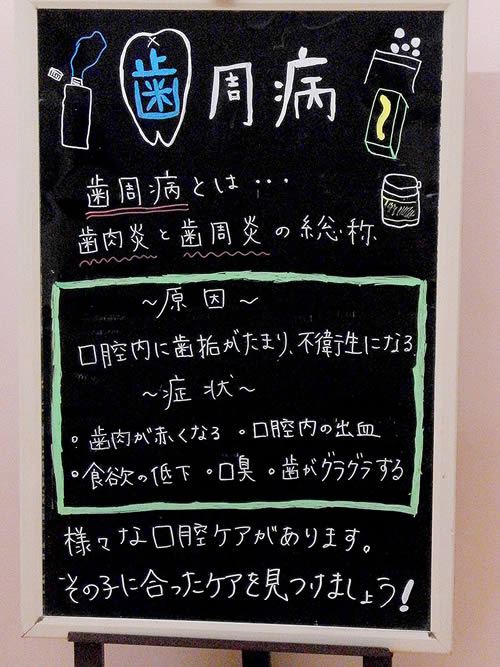 歯周病
歯周病とは・・・
歯肉炎と歯周炎の総称
～原因～
口腔内に歯垢がたまり、不衛生になる
～症状～
・歯肉が赤くなる ・口腔内の出血
・食欲の低下 ・口臭 ・歯がグラグラする
様々な口腔ケアがあります。
その子に合ったケアを見つけましょう!